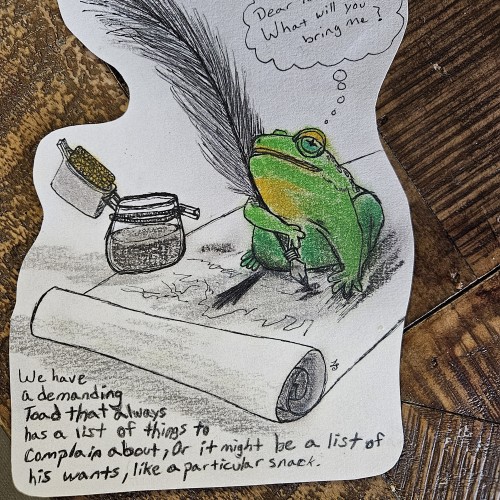 Dear
What will you
bring me?
We have
a demanding
Toad that always
has a list of things to
Complain about, Or it might be a list of
his wants, like a particular snack.